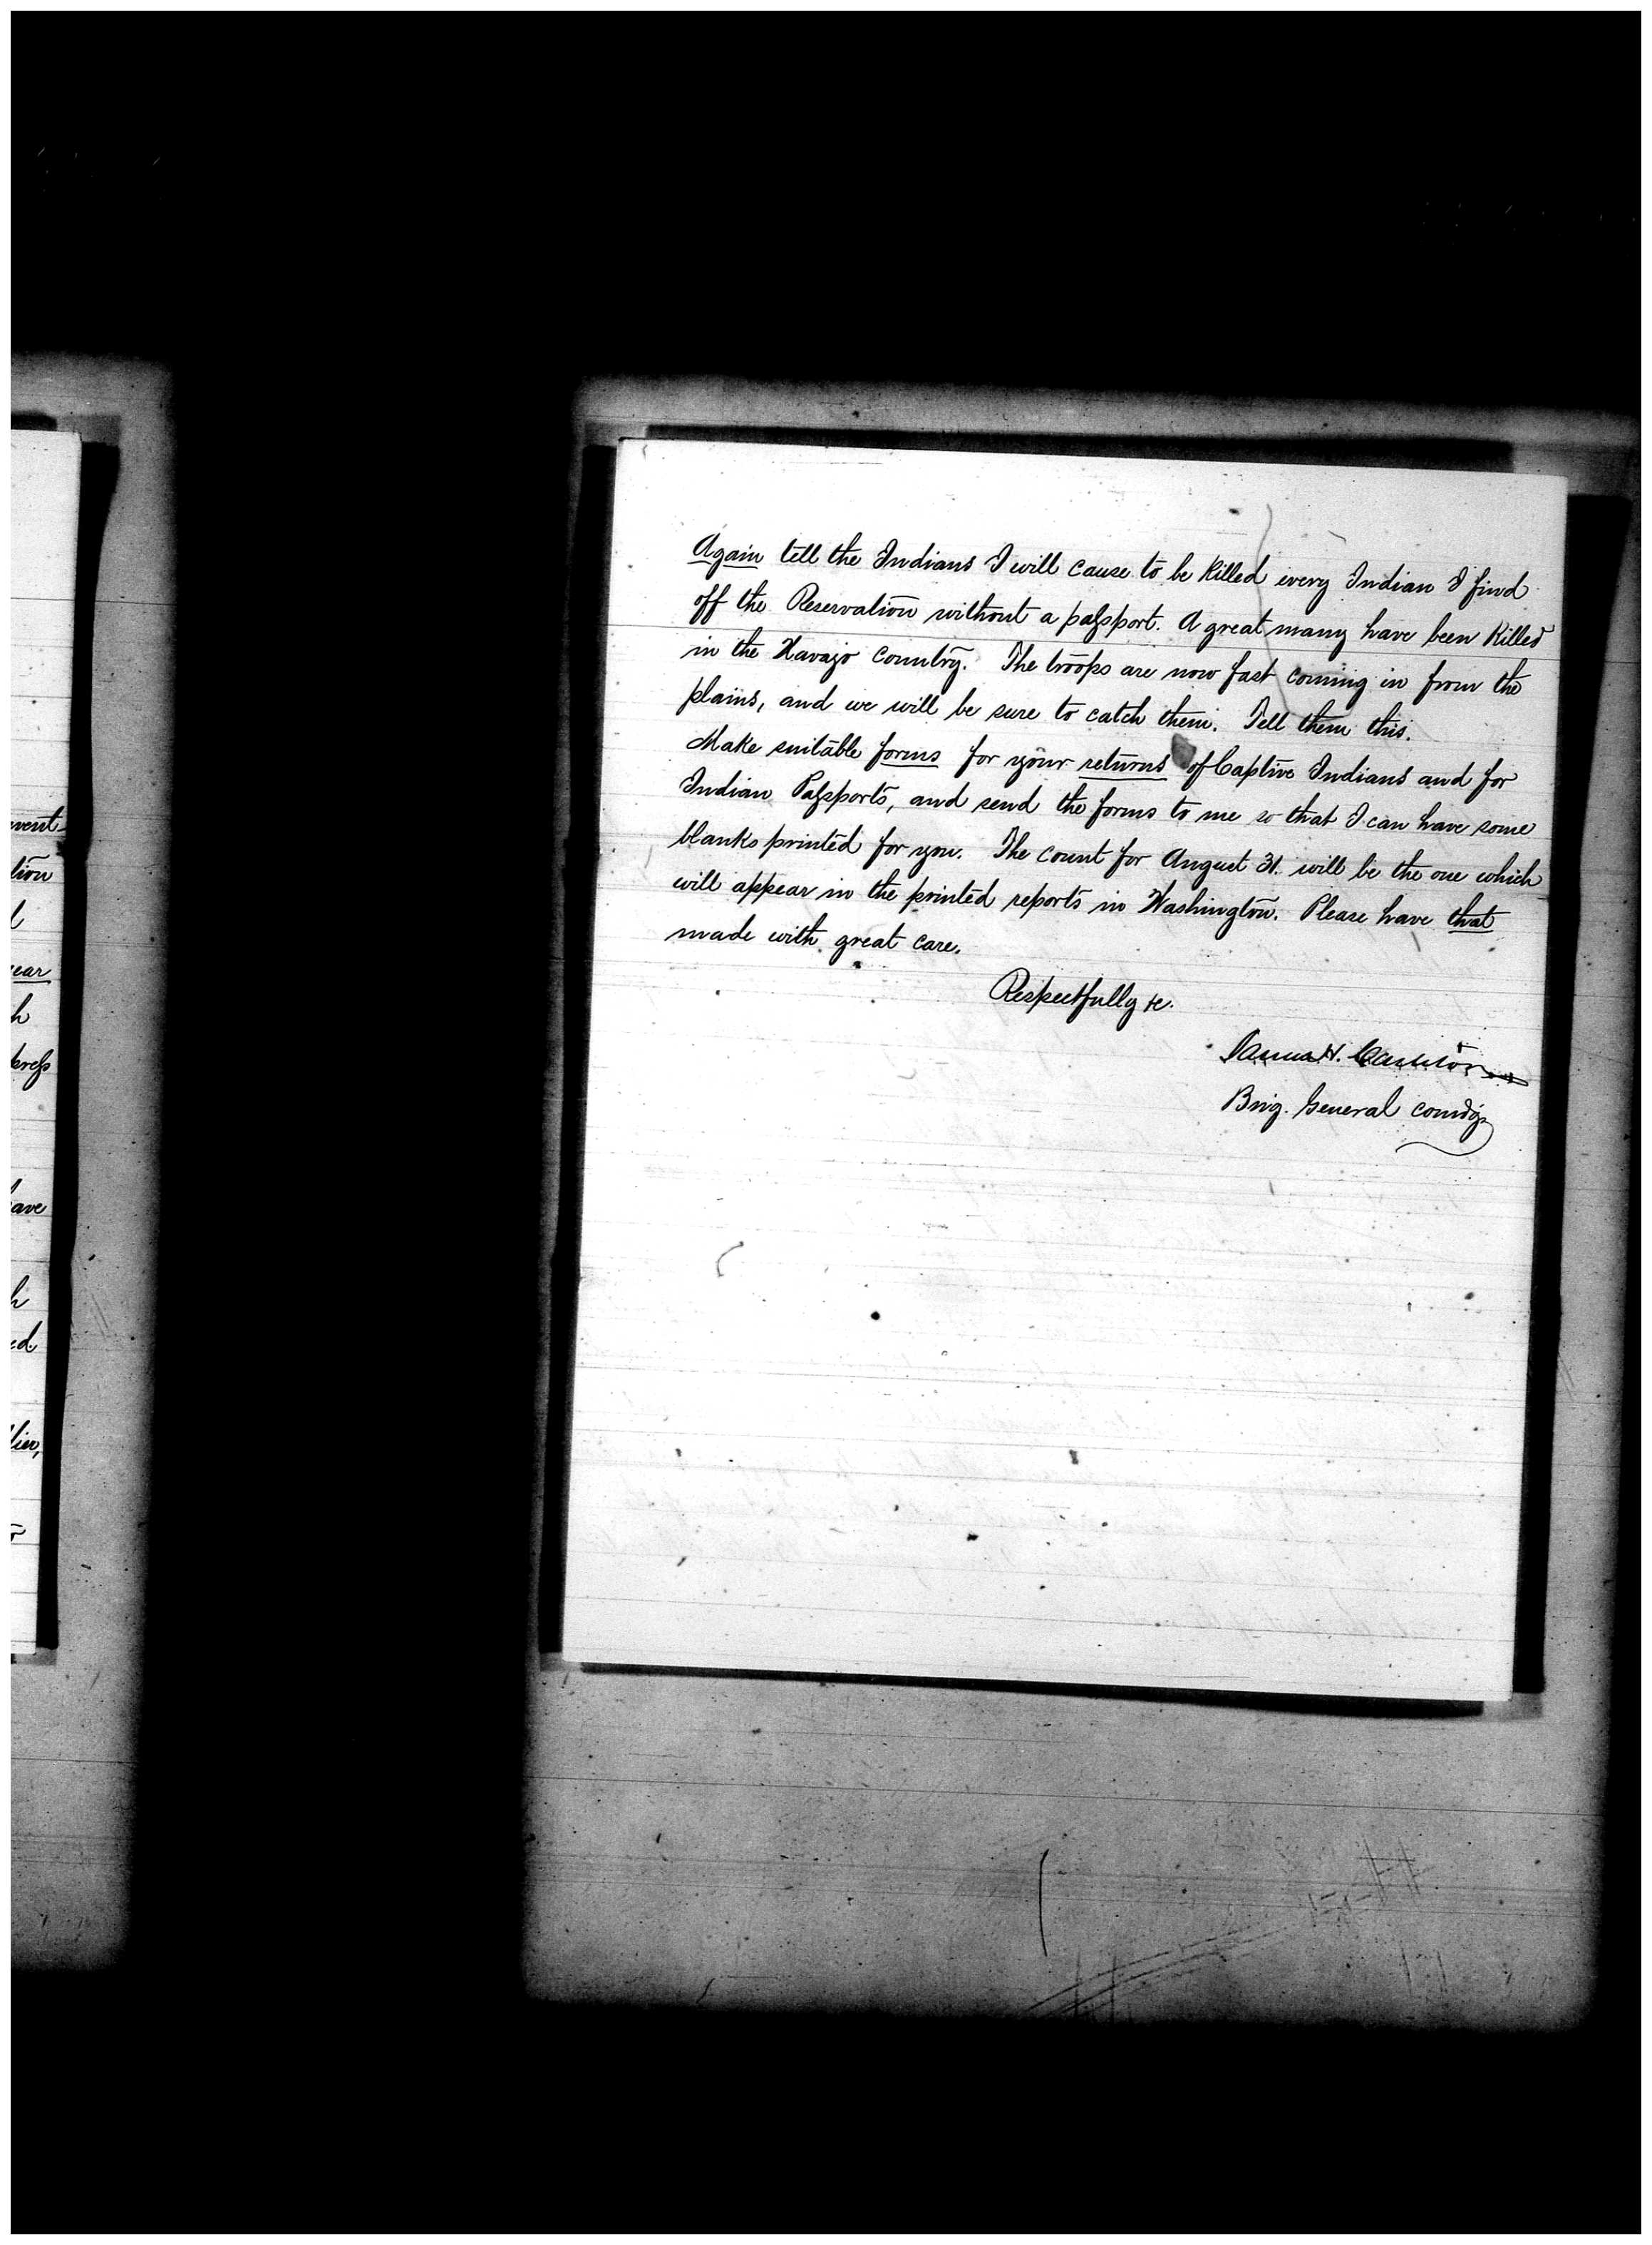 Again tell the Indians I will cause to be killed every Indian I find
off the Reservation without a passport. A great many have been killed
in the Navajo country. The troops are now fast coming in from the
plains, and we will be sure to catch them. Tell them this.
Make suitable forms for your returns of Captive Indians and for
Indian Passports, and send the forms to me so that I can have some
blanks printed for you. The count for August 31. will be the one which
will appear in the printed reports in Washington. Please have that
made with great care.
Respectfully &c.
James H. Carleton
Brig. General Comdg.